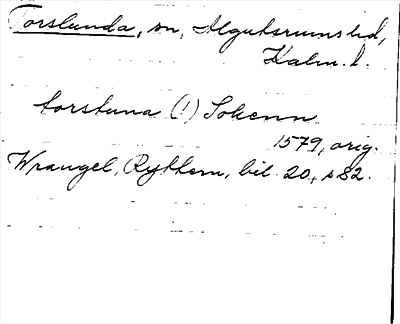 Torslunda, sn, Algutsrums hd,
Kalm. l.
torstuna (!) Sokenn
1579, orig.
Wrangel, Rytkern, bil. 20, s 82.